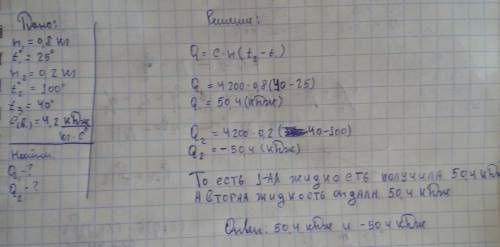 Дано:
m₁ = 0,8 кг
t₁° = 25°
m₂ = 0,2 кг
t₂° = 100°
t₃ = 40°
C(в.) = 4,2 кДж/кг·С°
Найти:
Q₁ - ?
Q₂ - ?
Решение:
Q = c·m(t₂ - t₁
Q₁ = 4200·0,8(40-25)
Q₁ = 50,4(кДж)
Q₂ = 4200·0,2(40-100)
Q₂ = -50,4(кДж)
То есть 1-ая жидкость получила 50,4 кДж
А вторая жидкость отдала 50,4 кДж
Ответ: 50,4 кДж и -50,4 кДж